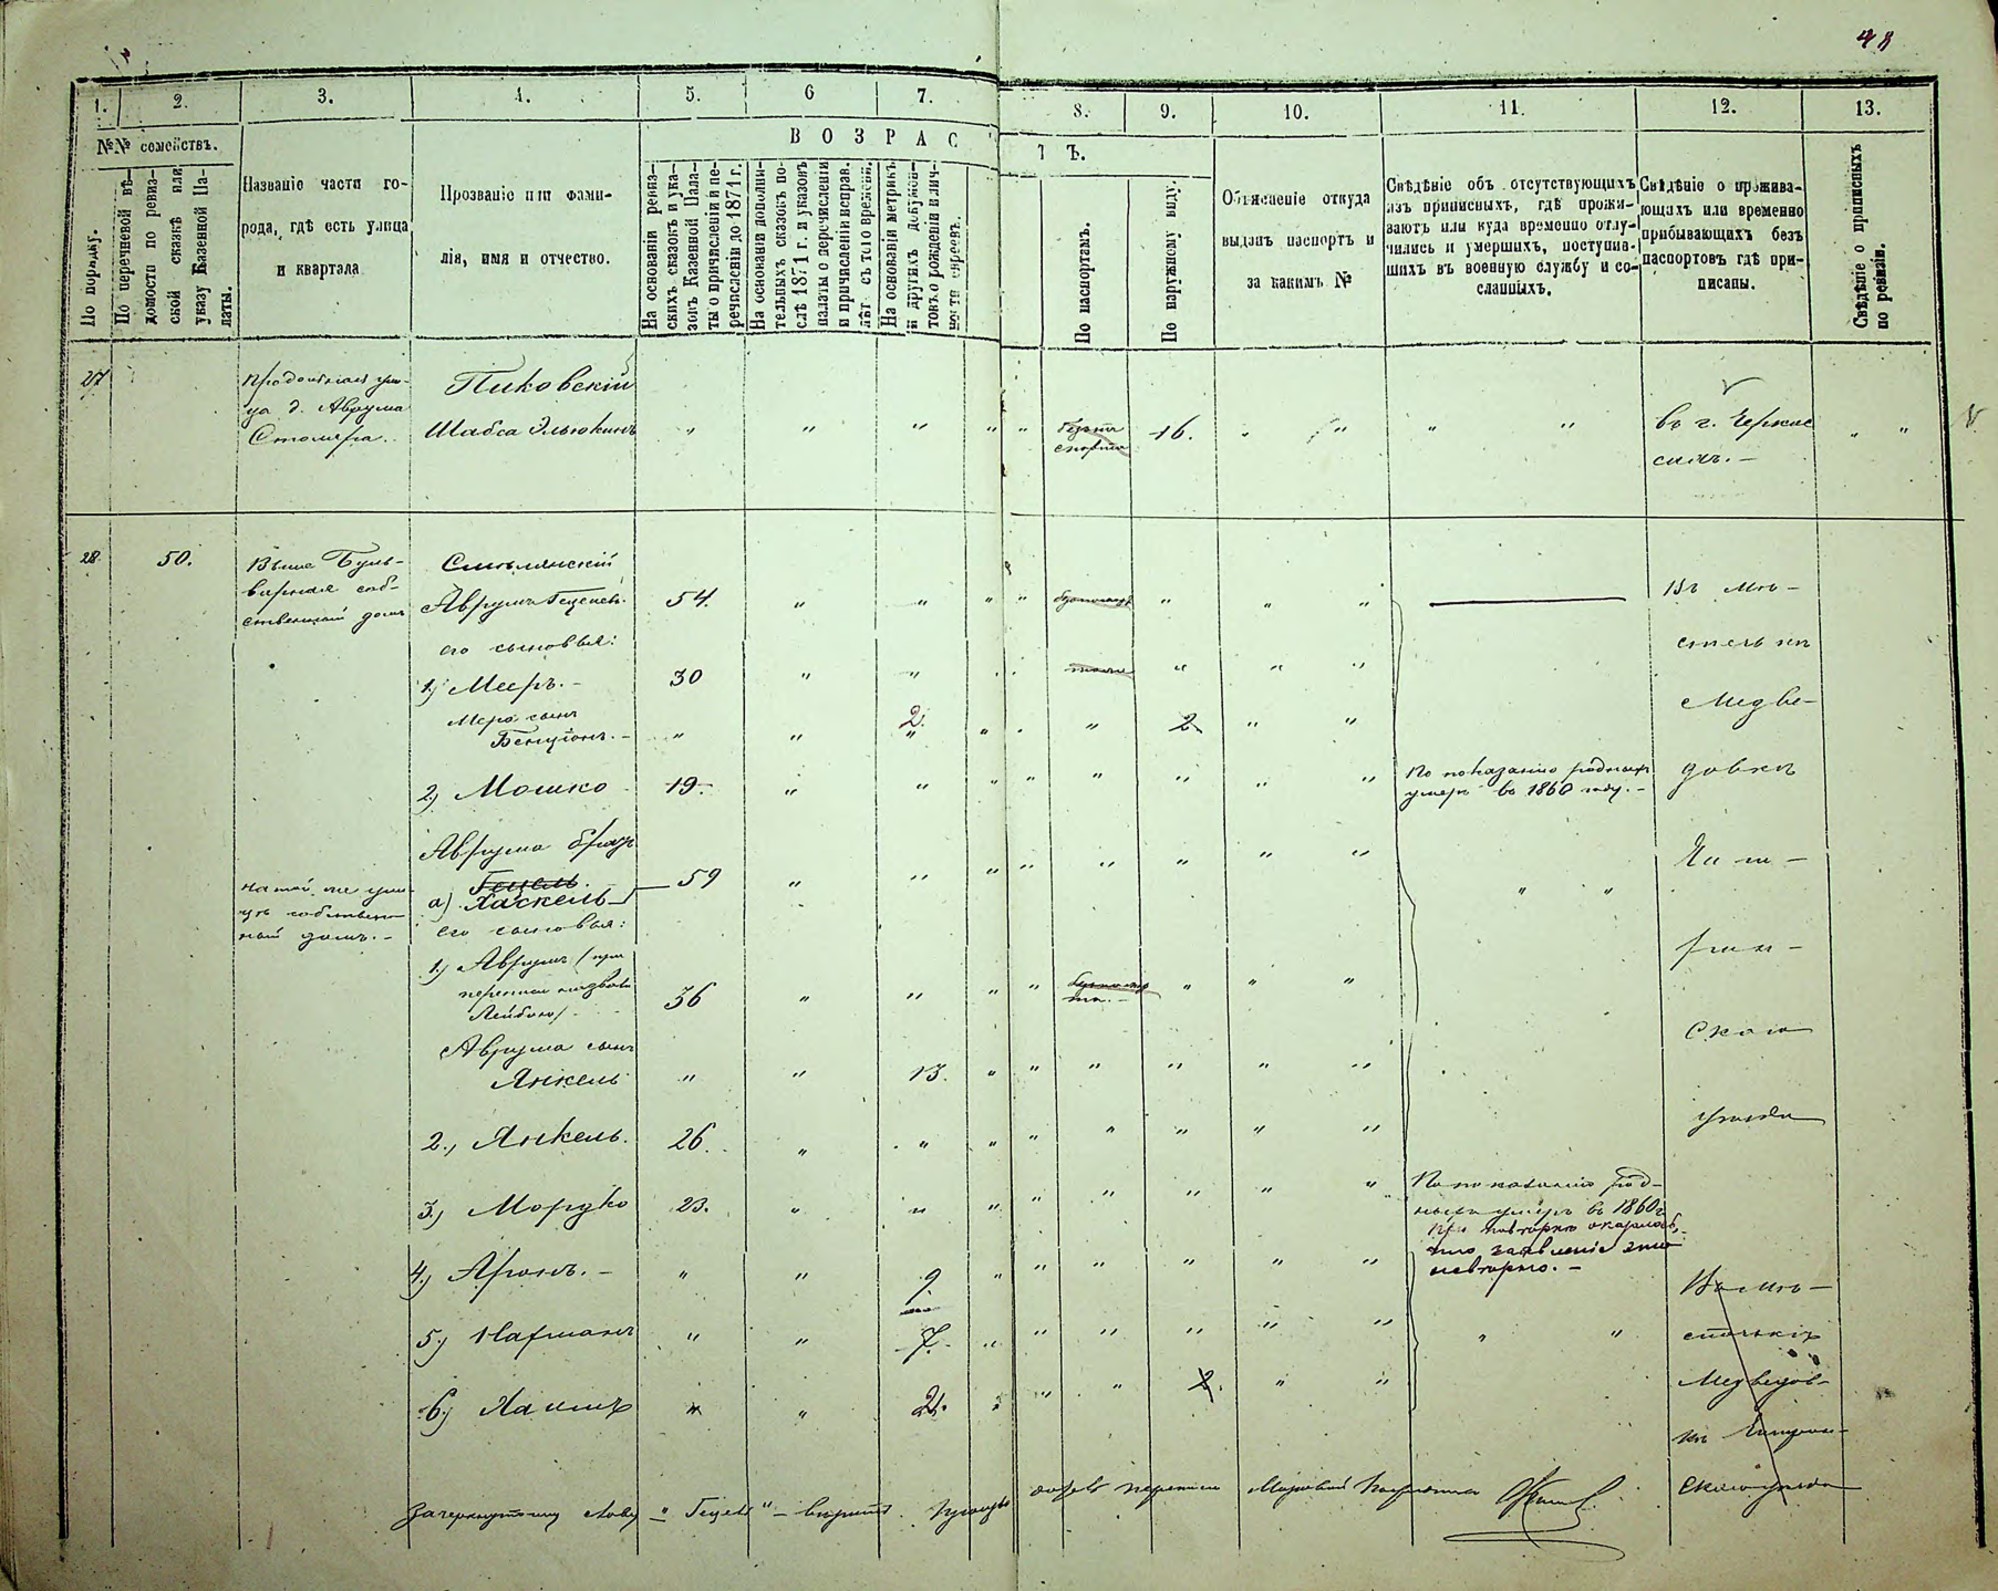 48
1.
2.
3.
4.
5.
6
7.
8.
9.
10.
11.
12.
13.
№№ семействъ.
По порядку.
По перечневой вѣ-
домости по ревиз-
ской сказкѣ или
указу Казенной Па-
латы.
Названіе части го-
рода, гдѣ есть улица
и квартала
Прозваніе или фами-
лія, имя и отчество.
ВОЗРАС
ТЪ.
На основаніи ревиз-
скихъ сказокъ и ука-
зокъ Казенной Пала-
ты о причисленіи и пе-
речисленіи до 1871 г.
На основаніи дополни-
тельныхъ сказокъ по-
слѣ 1871 г. и указовъ
палаты о перечисленіи
и причисленіи исправ.
лѣт съ того времени.
На основаніи метрикъ
и другихъ документ-
товъ о рожденіи и лич-
ности евреевъ.
По паспортамъ.
По наружному виду.
Объясненіе откуда
выданъ паспортъ и
за какимъ №
Свѣдѣніе объ отсутствующихъ
изъ приписныхъ, гдѣ прожи-
ваютъ или куда временно отлу-
чились и умершихъ, поступив-
шихъ въ военную службу и со-
сланныхъ.
Свѣдѣніе о прожива-
ющихъ или временно
прибывающихъ безъ
паспортовъ гдѣ при-
писаны.
Свѣдѣніе о приписныхъ
по ревизіи.
27
д. Аврума
Столяра.
Пиковскій
Шабса Эльюкинъ
16.
въ г. Черкас
сахъ.
28.
50.
Буль-
варная соб-
ственный домъ
Смолянскій
Аврумъ Гецелев.
54.
Въ мѣ-
его сыновья:
стечкѣ
1) Мееръ.
30
Медве-
Мера сынъ
Бенціонъ.
2.
2.
2) Мошко
19.
По показанію родныхъ
умеръ въ 1860 году.
довкѣ
Аврума братъ
Чи ги-
на той же ули-
цѣ собствен-
ный домъ.
Гецель
а) Хаскель
59
его сыновья:
рин-
1) Аврумъ (при
переписи назвался
Лейбою)
36
Аврума сынъ
Янкель
13.
скаго
2) Янкель.
26.
уѣзда
3) Мордко
23.
По показанію род-
ныхъ умеръ въ 1860 г.
При повѣркѣ оказалось,
что заявленіе это
невѣрно.
4) Аронъ.
9.
Въ мѣ-
5) Нафманъ
7.
стечкѣ
6) Хаимъ
2.
2.
Медведов-
кѣ Чигрин-
скаго уѣзда
Зачеркнутому слову "Гецель" вѣрить.